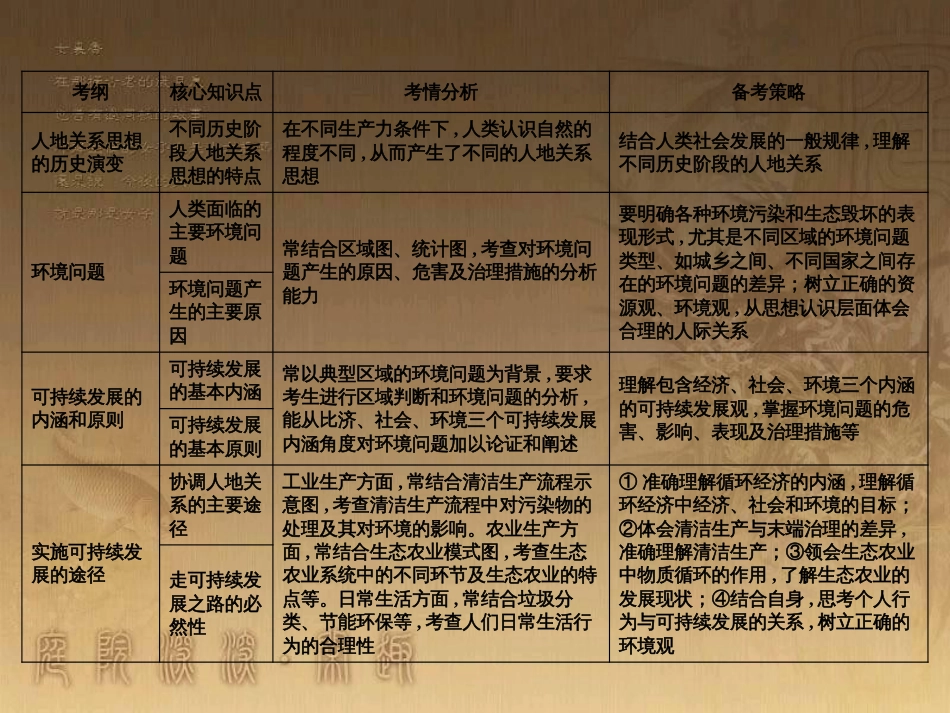 女真慧
考纲
核心知识点
考情分析
备考策略
人地关系思想
的历史演变
不同历史阶
段人地关系
思想的特点
在不同生产力条件下，人类认识自然的
程度不同，从而产生了不同的人地关系
思想
结合人类社会发展的一般规律，理解
不同历史阶段的人地关系
环境问题
人类面临的
主要环境问
题
环境问题产
生的主要原
因
常结合区域图、统计图，考查对环境问
题产生的原因、危害及治理措施的分析
能力
要明确各种环境污染和生态毁坏的表
现形式，尤其是不同区域的环境问题
类型、如城乡之间、不同国家之间存
在的环境问题的差异；树立正确的资
源观、环境观，从思想认识层面体会
合理的人际关系
可持续发展的
内涵和原则
可持续发展
的基本内涵
可持续发展
的基本原则
常以典型区域的环境问题为背景，要求
考生进行区域判断和环境问题的分析，
能从比济、社会、环境三个可持续发展
内涵角度对环境问题加以论证和阐述
理解包含经济、社会、环境三个内涵
的可持续发展观，掌握环境问题的危
害、影响、表现及治理措施等
实施可持续发
展的途径
协调人地关
系的主要途
径
走可持续发
展之路的必
然性
工业生产方面，常结合清洁生产流程示
意图，考查清洁生产流程中对污染物的
处理及其对环境的影响。农业生产方
面，常结合生态农业模式图，考查生态
农业系统中的不同环节及生态农业的特
点等。日常生活方面，常结合垃圾分
类、节能环保等，考查人们日常生活行
为的合理性
① 准确理解循环经济的内涵，理解循
环经济中经济、社会和环境的目标；
②体会清洁生产与末端治理的差异，
准确理解清洁生产；③领会生态农业
中物质循环的作用，了解生态农业的
发展现状；④结合自身，思考个人行
为与可持续发展的关系，树立正确的
环境观